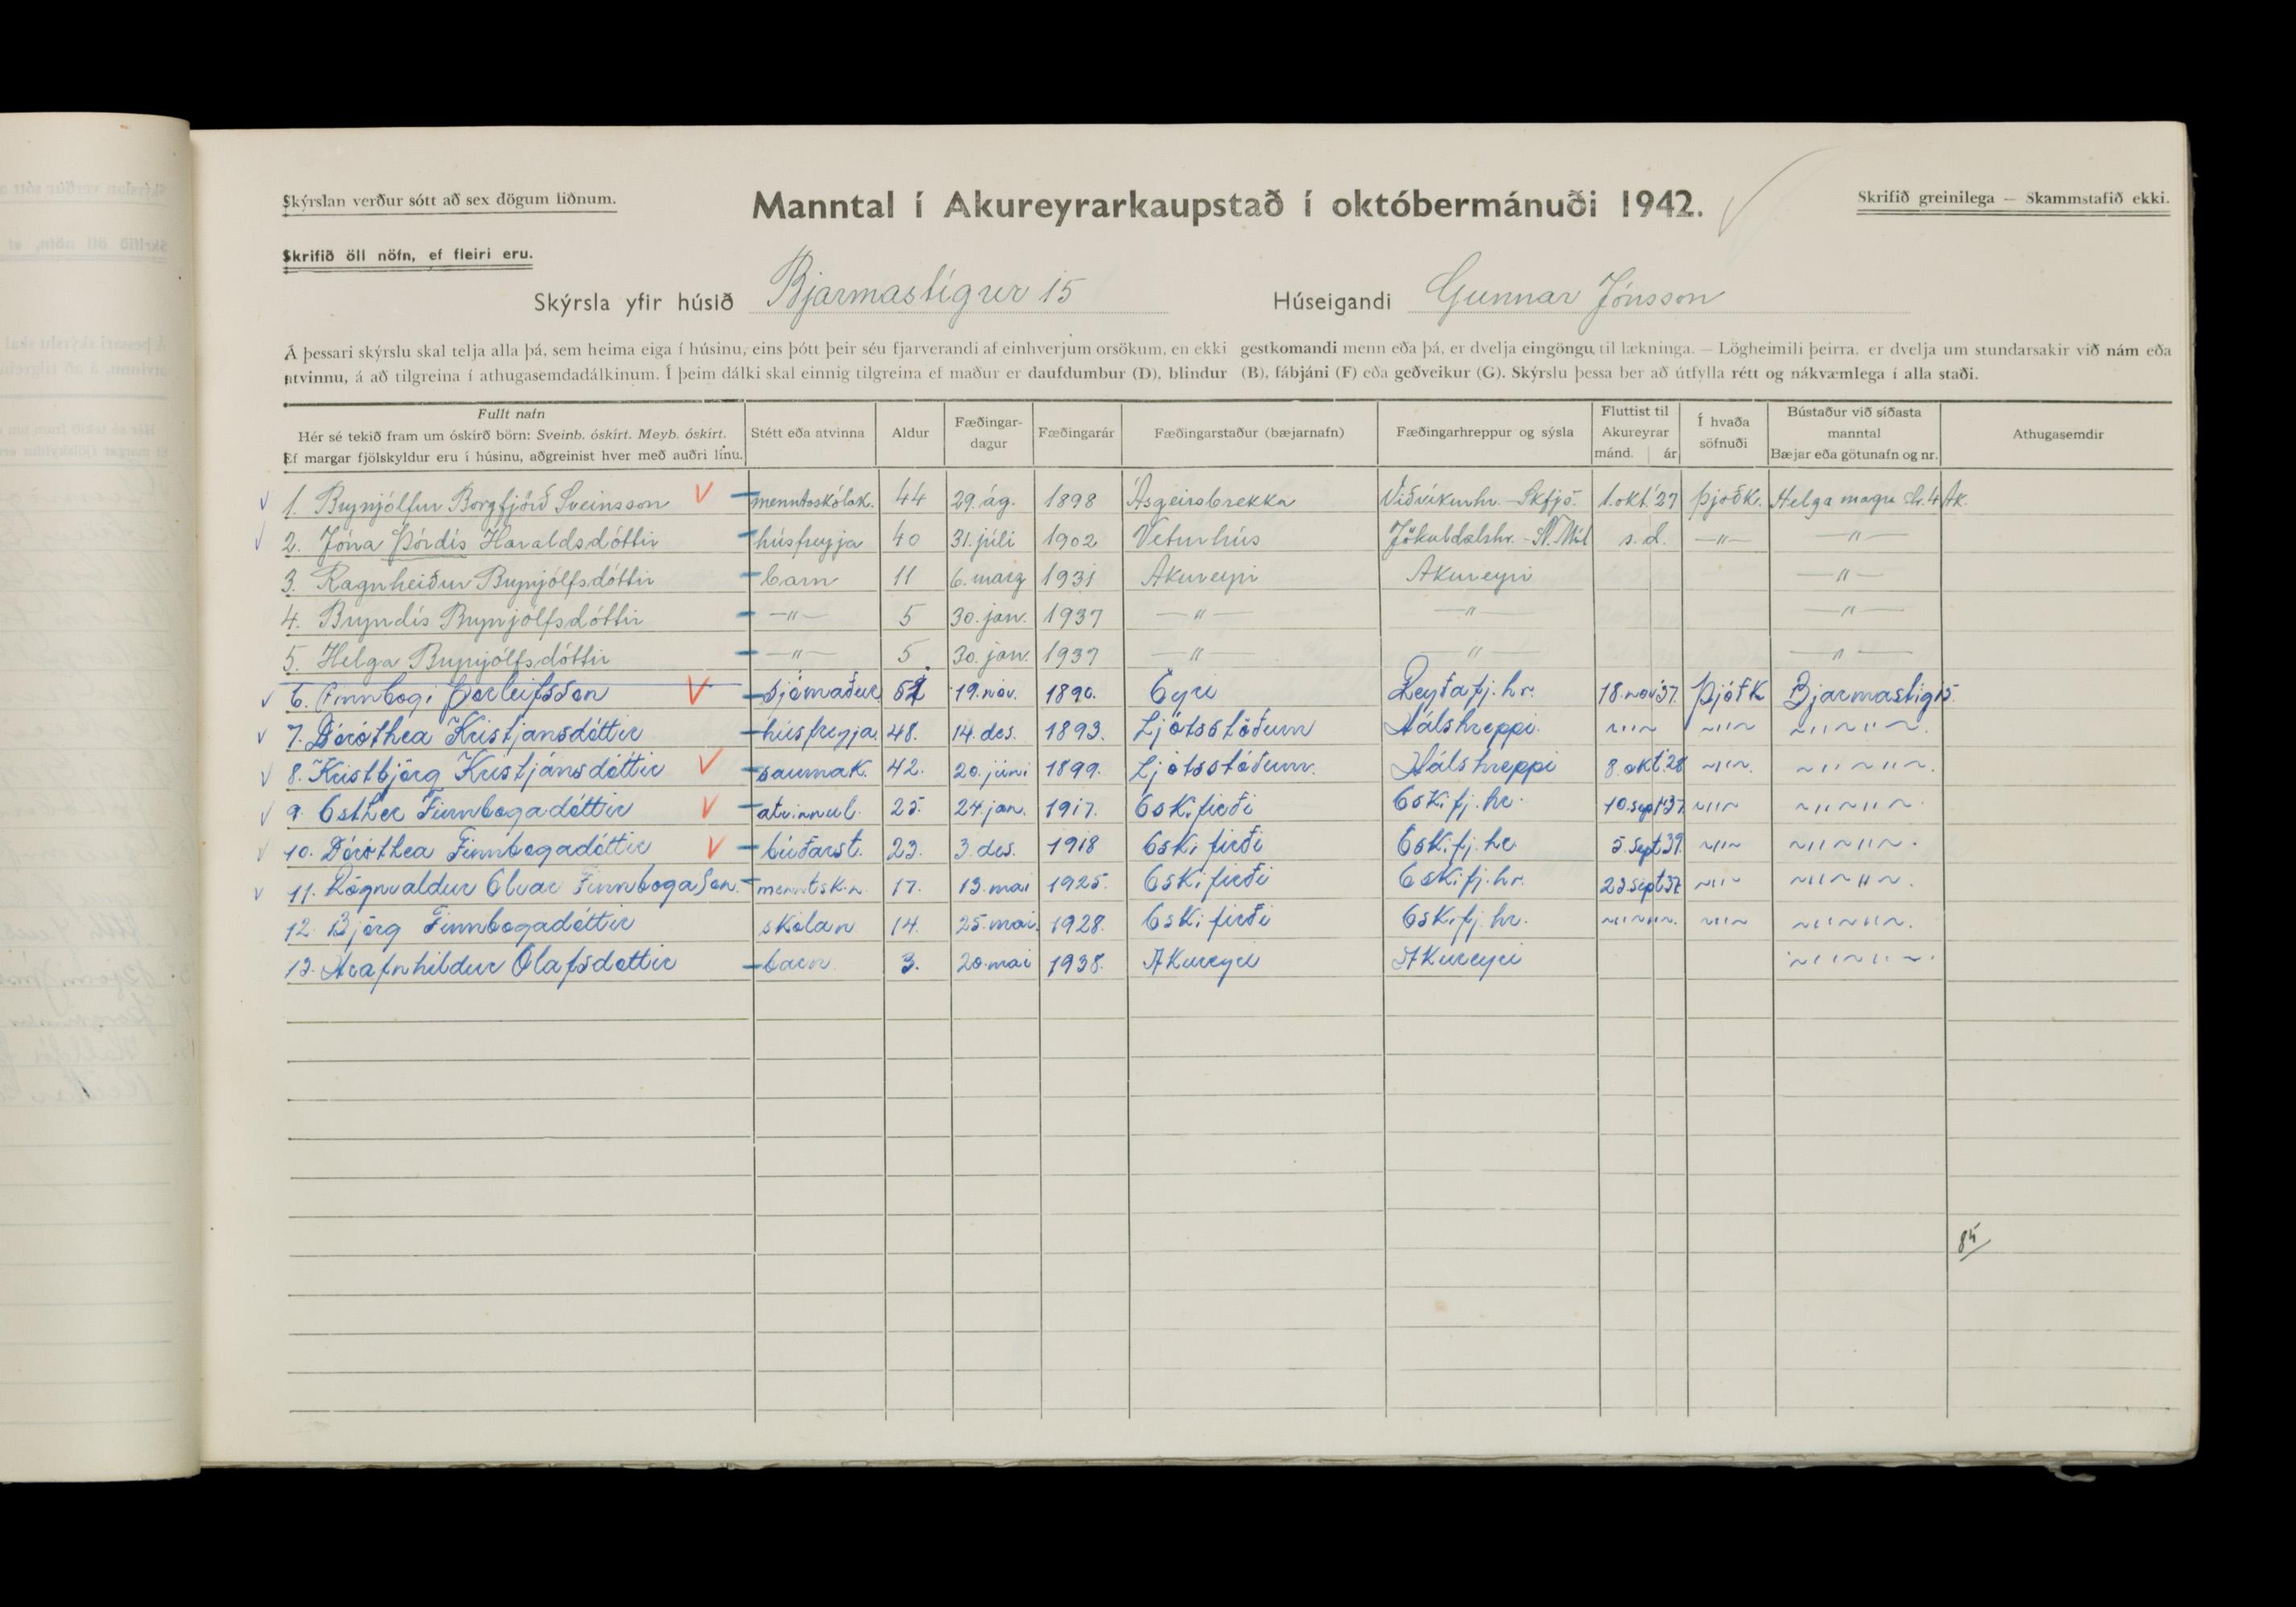 Skýrslan verður sótt að sex dögum liðnum.
Manntal í Akureyrarkaupstað í októbermánuði 1942.
Skrifið greinilega — Skammstafið ekki.
Skrifið öll nöfn, ef fleiri eru.
Skýrsla yfir húsið Bjarmastígur 15 Húseigandi Gunnar Jónsson
Á þessari skýrslu skal telja alla þá, sem heima eiga í húsinu, eins þótt þeir séu fjarverandi af einhverjum orsökum, en ekki gestkomandi menn eða þá, er dvelja eingöngu til lækninga. — Lögheimili þeirra. er dvelja um stundarsakir við nám eða
atvinnu, á að tilgreina í athugasemdadálkinum. Í þeim dálki skal einnig tilgreina ef maður er daufdumbur (D), blindur (B), fábjáni (F) eða geðveikur (G). Skýrslu þessa ber að útfylla rétt og nákvæmlega í alla staði.
Fullt nafn
Hér sé tekið fram um óskírð börn: Sveinb. óskírt. Meyb. óskírt.
Ef margar fjölskyldur eru í húsinu, aðgreinist hver með auðri línu.
Stétt eða atvinna
Aldur
Fæðingar-
dagur
Fæðingarár
Fæðingarstaður (bæjarnafn)
Fæðingarhreppur og sýsla
Fluttist til
Akureyrar
mánd. ár
Í hvaða
söfnuði
Bústaður við síðasta
manntal
Bæjar eða götunafn og nr.
Athugasemdir
1. Brynjólfur Borgfjörð Sveinsson menntaskólak. 44 29. ág. 1898 Ásgeirsbrekka Viðvíkurhr. - Skfjs. 1. okt. '27 Þjóðk. Helga magra str. 4 Ak.
2. Jóna Þórdís Haraldsdóttir húsfreyja 40 31. júlí 1902 Veturhús Jökuldalshr. - N. Múl s. d. —"— —"—
3. Ragnheiður Brynjólfsdóttir barn 11 6. marz 1931 Akureyri Akureyri —"—
4. Bryndís Brynjólfsdóttir —"— 5 30. jan. 1937 —"— —"— —"—
5. Helga Brynjólfsdóttir —"— 5 30. jan. 1937 —"— —"— —"—
6. Finnbogi Þorleifsson sjómaður 51 19. nóv. 1890. Eyri Reyðafj. hr. 18. nov '37. Þjóðk Bjarmastig 15.
7. Dóróthea Kristjánsdóttir húsfreyja. 48. 14. des. 1893. Ljótsstöðum Hálshreppi. ~"~ ~"~ ~"~"~.
8. Kristbjörg Kristjánsdóttir saumak. 42. 20. júní 1899. Ljótsstöðum. Hálshreppi 8. okt '28 ~"~. ~"~"~.
9. Esther Finnbogadóttir atvinnul. 25. 24 jan. 1917. Eskifirði Eskifj. hr. 10. sept '37 ~"~ ~"~"~.
10. Dóróthea Finnbogadóttir búðarst. 23. 3. des. 1918 Eskifirði Eskifj. hr. 5. sept 39. ~"~ ~"~"~.
11. Rögnvaldur Elvar Finnbogason. menntsk.n. 17. 13. mai 1925. Eskifirði Eskifj. hr. 23. sept 37 ~"~ ~"~"~.
12. Björg Finnbogadóttir skólan. 14. 25. mai. 1928. Eskifirði Eskifj. hr. ~"~"~. ~"~ ~"~"~.
13. Hrafnhildur Ólafsdóttir barn. 3. 20. mai 1938. Akureyri Akureyri ~"~"~.